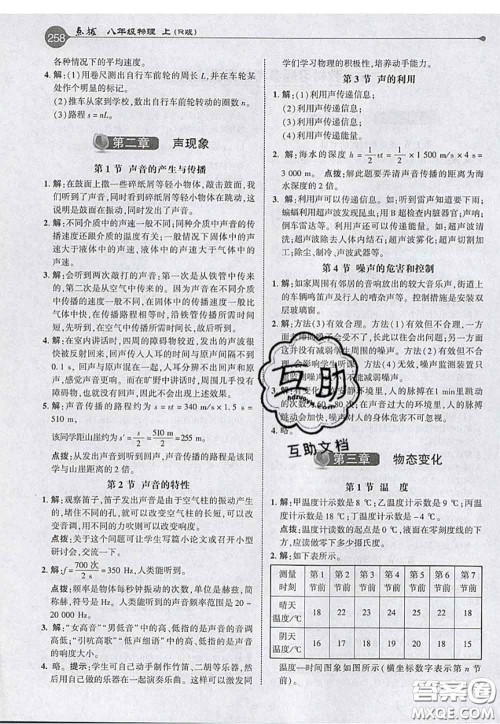 258 点拨 八年级物理 上(R版)
各种情况下的平均速度。
4. 解:(1)用卷尺测出自行车前轮的周长 L,并在车轮某
处作明显的标记。
(2)推车从家到学校,数出自行车前轮转动的圈数 n。
(3)路程 s=nL。
第二章 声现象
第 1 节 声音的产生与传播
1. 解:在鼓面上撒一些碎纸屑等轻小物体,敲击鼓面,我
们听到了声音,同时看到碎纸屑等轻小物体在跳动,这
说明鼓面的振动产生了声音。
2. 解:不同介质中的声速一般不同,同种介质中声音的传
播速度还跟介质的温度有关;一般情况下,固体中的声
速大于液体中的声速,液体中的声速大于气体中的声
速。
3. 解:会听到两次敲打的声音:第一次是从铁管中传来
的,第二次是从空气中传来的。因为声音在不同介质中
的传播速度一般不同,在固体中传播较快,在空气中传
播较慢,在传播路程相同时,沿铁管传播所需时间较
短,沿空气传播所需时间较长。
4. 解:在室内讲话时,我们四周的障碍物较近,声音发出
后很快被反射回来,回声传入人耳的时间与原声传入
人耳的时间间隔不到 0.1 s,人耳无法区分回声和原
声,感觉声音更响。而在旷野中讲话时,因为四周没有
障碍物,没有声音返回来,因此不会出现上述效果。
5. 解:声音传播的路程 s=vt=340 m/s×1.5 s=510 m,
该同学距山崖约为 s/2 = 510 m/2 =255 m。
点拨:从发声到听到回声,声音传播的路程等于该同学
与山崖的距离的 2 倍。
第 2 节 声音的特性
1. 解:观察笛子,笛子发出声音是由于空气柱的振动产生
的,堵住不同的孔,就可以改变空气柱的长度,从而改
变声音的音调。可以就此写成小论文或者召开小型研
讨会,交流一下。
2. 解:f= 700 次/2 s =350 Hz,人类能听到。
点拨:频率是物体每秒振动的次数,单位是赫兹,简称
赫,符号为 Hz。人类能够听到的声音频率范围是 20~
20 000 Hz。
3. 解:“女高音”“男低音”中的高、低指的是声音的音调的
高低;“引吭高歌”“低声细语”中的高、低指的是声音的
响度的大小。
4. 略。提示:学生可自己动手制作竹笛、二胡等乐器,然
后用自己做的乐器在一起演奏乐曲。其目的是激发同
学们学习物理的兴趣,并养成动手动脑的好习惯。
第 3 节 声的利用
1. 解:(1)利用声传递信息;
(2)利用声传递信息;
(3)利用声传递信息;
(4)利用声传递能量。
2. 解:海水的深度 h= 1/2 s= 1/2 vt= 1/2 ×1 500 m/s×4 s=
3 000 m。点拨:解此题要弄清声音传播的距离为海
水深度的 2 倍。
3. 解:利用声可以传递信息。如:听到雷声知道要下雨;
蝙蝠利用超声波发现昆虫;用 B 超检查内脏器官;倒车
雷达、声呐等。利用声可以传递能量。如:超声波清洗
钟表;超声波除去人体内结石;超声波雾化;超声波切削
加工;超声波除尘、制药、消毒等。
第 4 节 噪声的危害和控制
1. 解:如家周围有邻居的音响放出的较大音乐声,街道上
的车辆鸣笛声及行人的嘈杂声等。控制措施是安装双
层玻璃窗。
互助
互助文档
4. 略。
第三章 物态变化
第 1 节 温 度
1. 解:甲温度计示数是 8 ℃;乙温度计示数是 9 ℃;丙温
度计示数是 18 ℃;丁温度计示数是 −4 ℃。
点拨:温度计读数的起点是 0 ℃,液面在零刻线的下
方,应倒着数零下多少摄氏度。
2. 解:如下表所示。
测量时刻 第 1 节前 第 2 节前 第 3 节前 第 4 节前 第 5 节前 第 6 节前 第 7 节前
晴天温度/℃ 18 22 23 24 25 24 22
阴天温度/℃ 16 17 18 18 19 18 17
温度—时间图象如图所示(横坐标数字表示第 n 节
前)。
答案圈
MXQE.COM